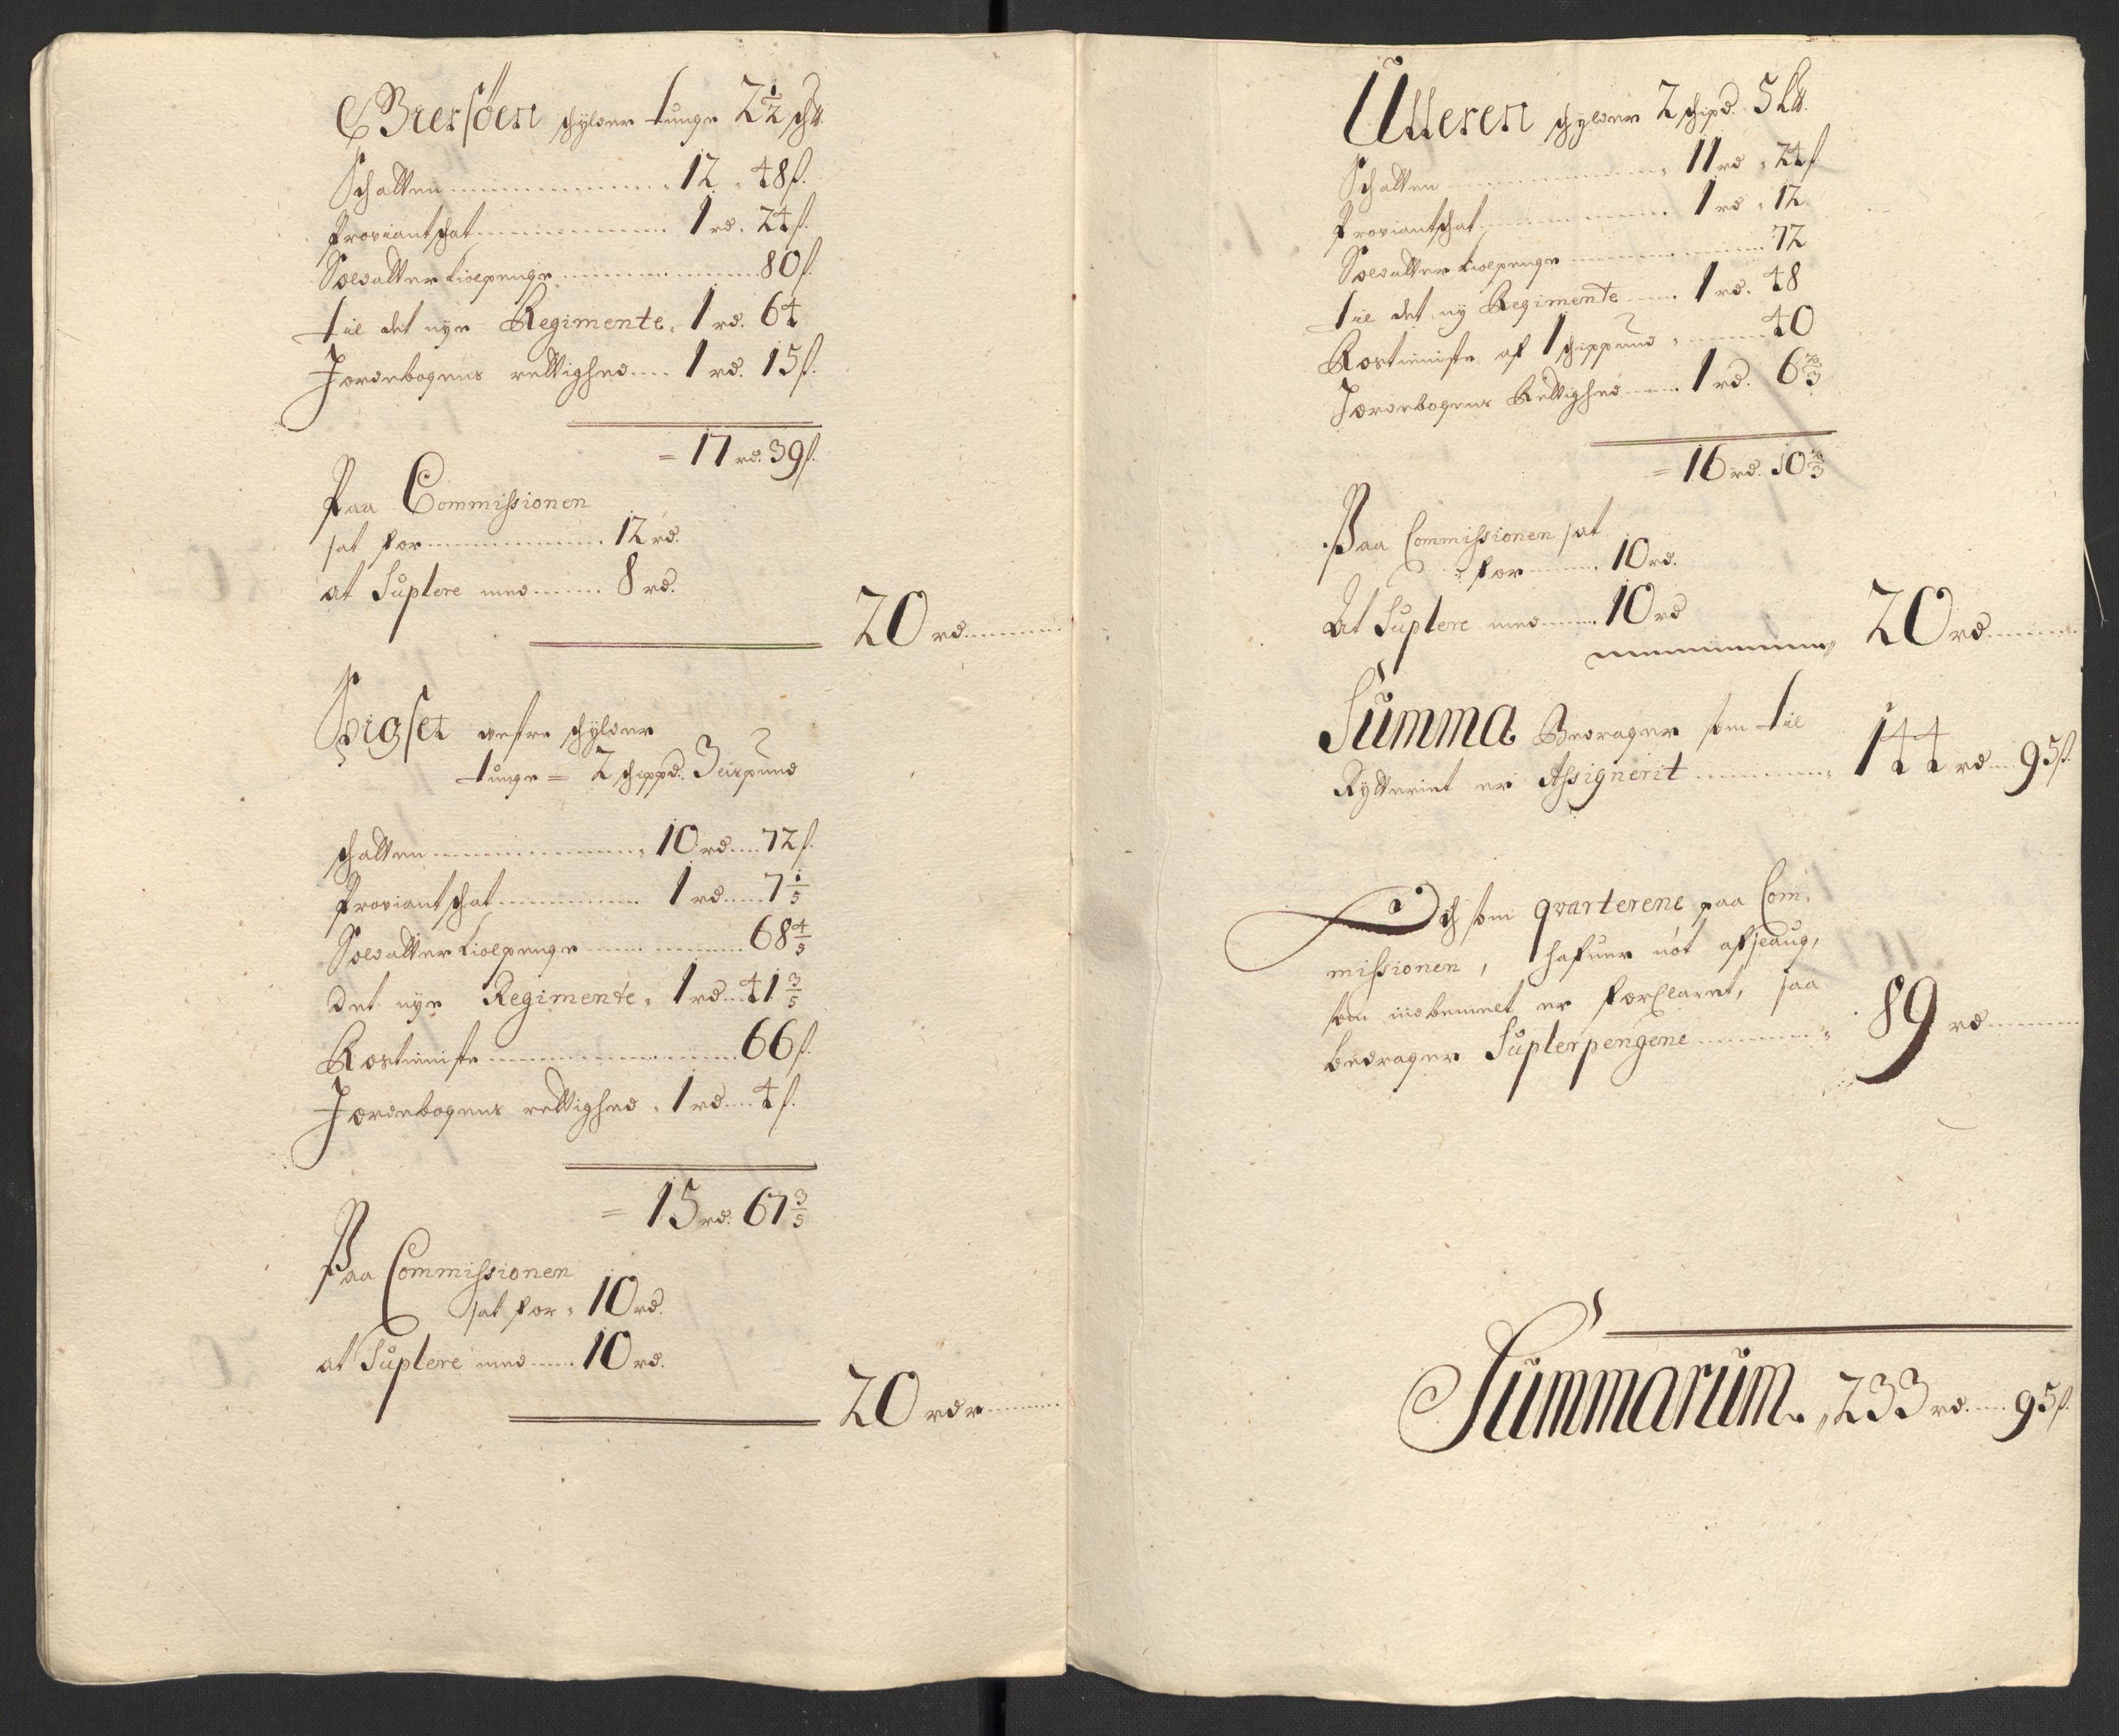 Biersøen schylder tunge 2½ sch℔.
Schatten ......... 12 . 48 s.
Proviantschat ......... 1 rd. 24 s.
Soldatter Kiolpenge ......... 80 s.
til det nye Regimente. 1 rd. 64
Jordebogens rettighed .... 1 rd. 15 s.
= 17 rd. 39 s.
Paa Commissionen
sat for ......... 12 rd.
at Suplere med ....... 8 rd.
20 rd.
Vigset vestre schylder
tunge = 2 schippd. 3 Lispund
schatten ......... 10 rd .... 72 s.
Proviantschat ......... 1 rd .... 7 1/5
Soldatter Kiolpenge ......... 68 4/5
det nye Regimente . 1 rd ... 41 3/5
Rostieniste ......... 66 s.
Jordebogens rettighed . 1 rd .... 4 s.
= 15 rd. 67 3/5
Paa Commissionen
sat for . 10 rd.
at Suplere med ...... 10 rd.
20 rdr
Utteren schylder 2 schipd. 5 L℔.
Schatten ......... 11 rd . 24 s
Proviantschat ......... 1 rd . 12
Soldatter Kiolpenge ......... 72
til det ny Regimente ..... 1 rd. 48
Rostieniste af 1 schippund . ....... 40
Jordebogens Rettighed ..... 1 rd. 6 2/3
= 16 rd. 10 2/3
Paa Commissionen sat
for ....... 10 rd.
At Suplere med ...... 10 rd
20 rd
Summa Bedrager som til
Rytteriet er Assignerit ......... 144 rd ... 95 s.
Och som qvarterene paa Com-
missionen, hafuer udt afseaug,
som indbemelt er forclaret, saa
bedrager Suplerpengene ......... 89 rd
Summarum. 233 rd ..... 95 s.